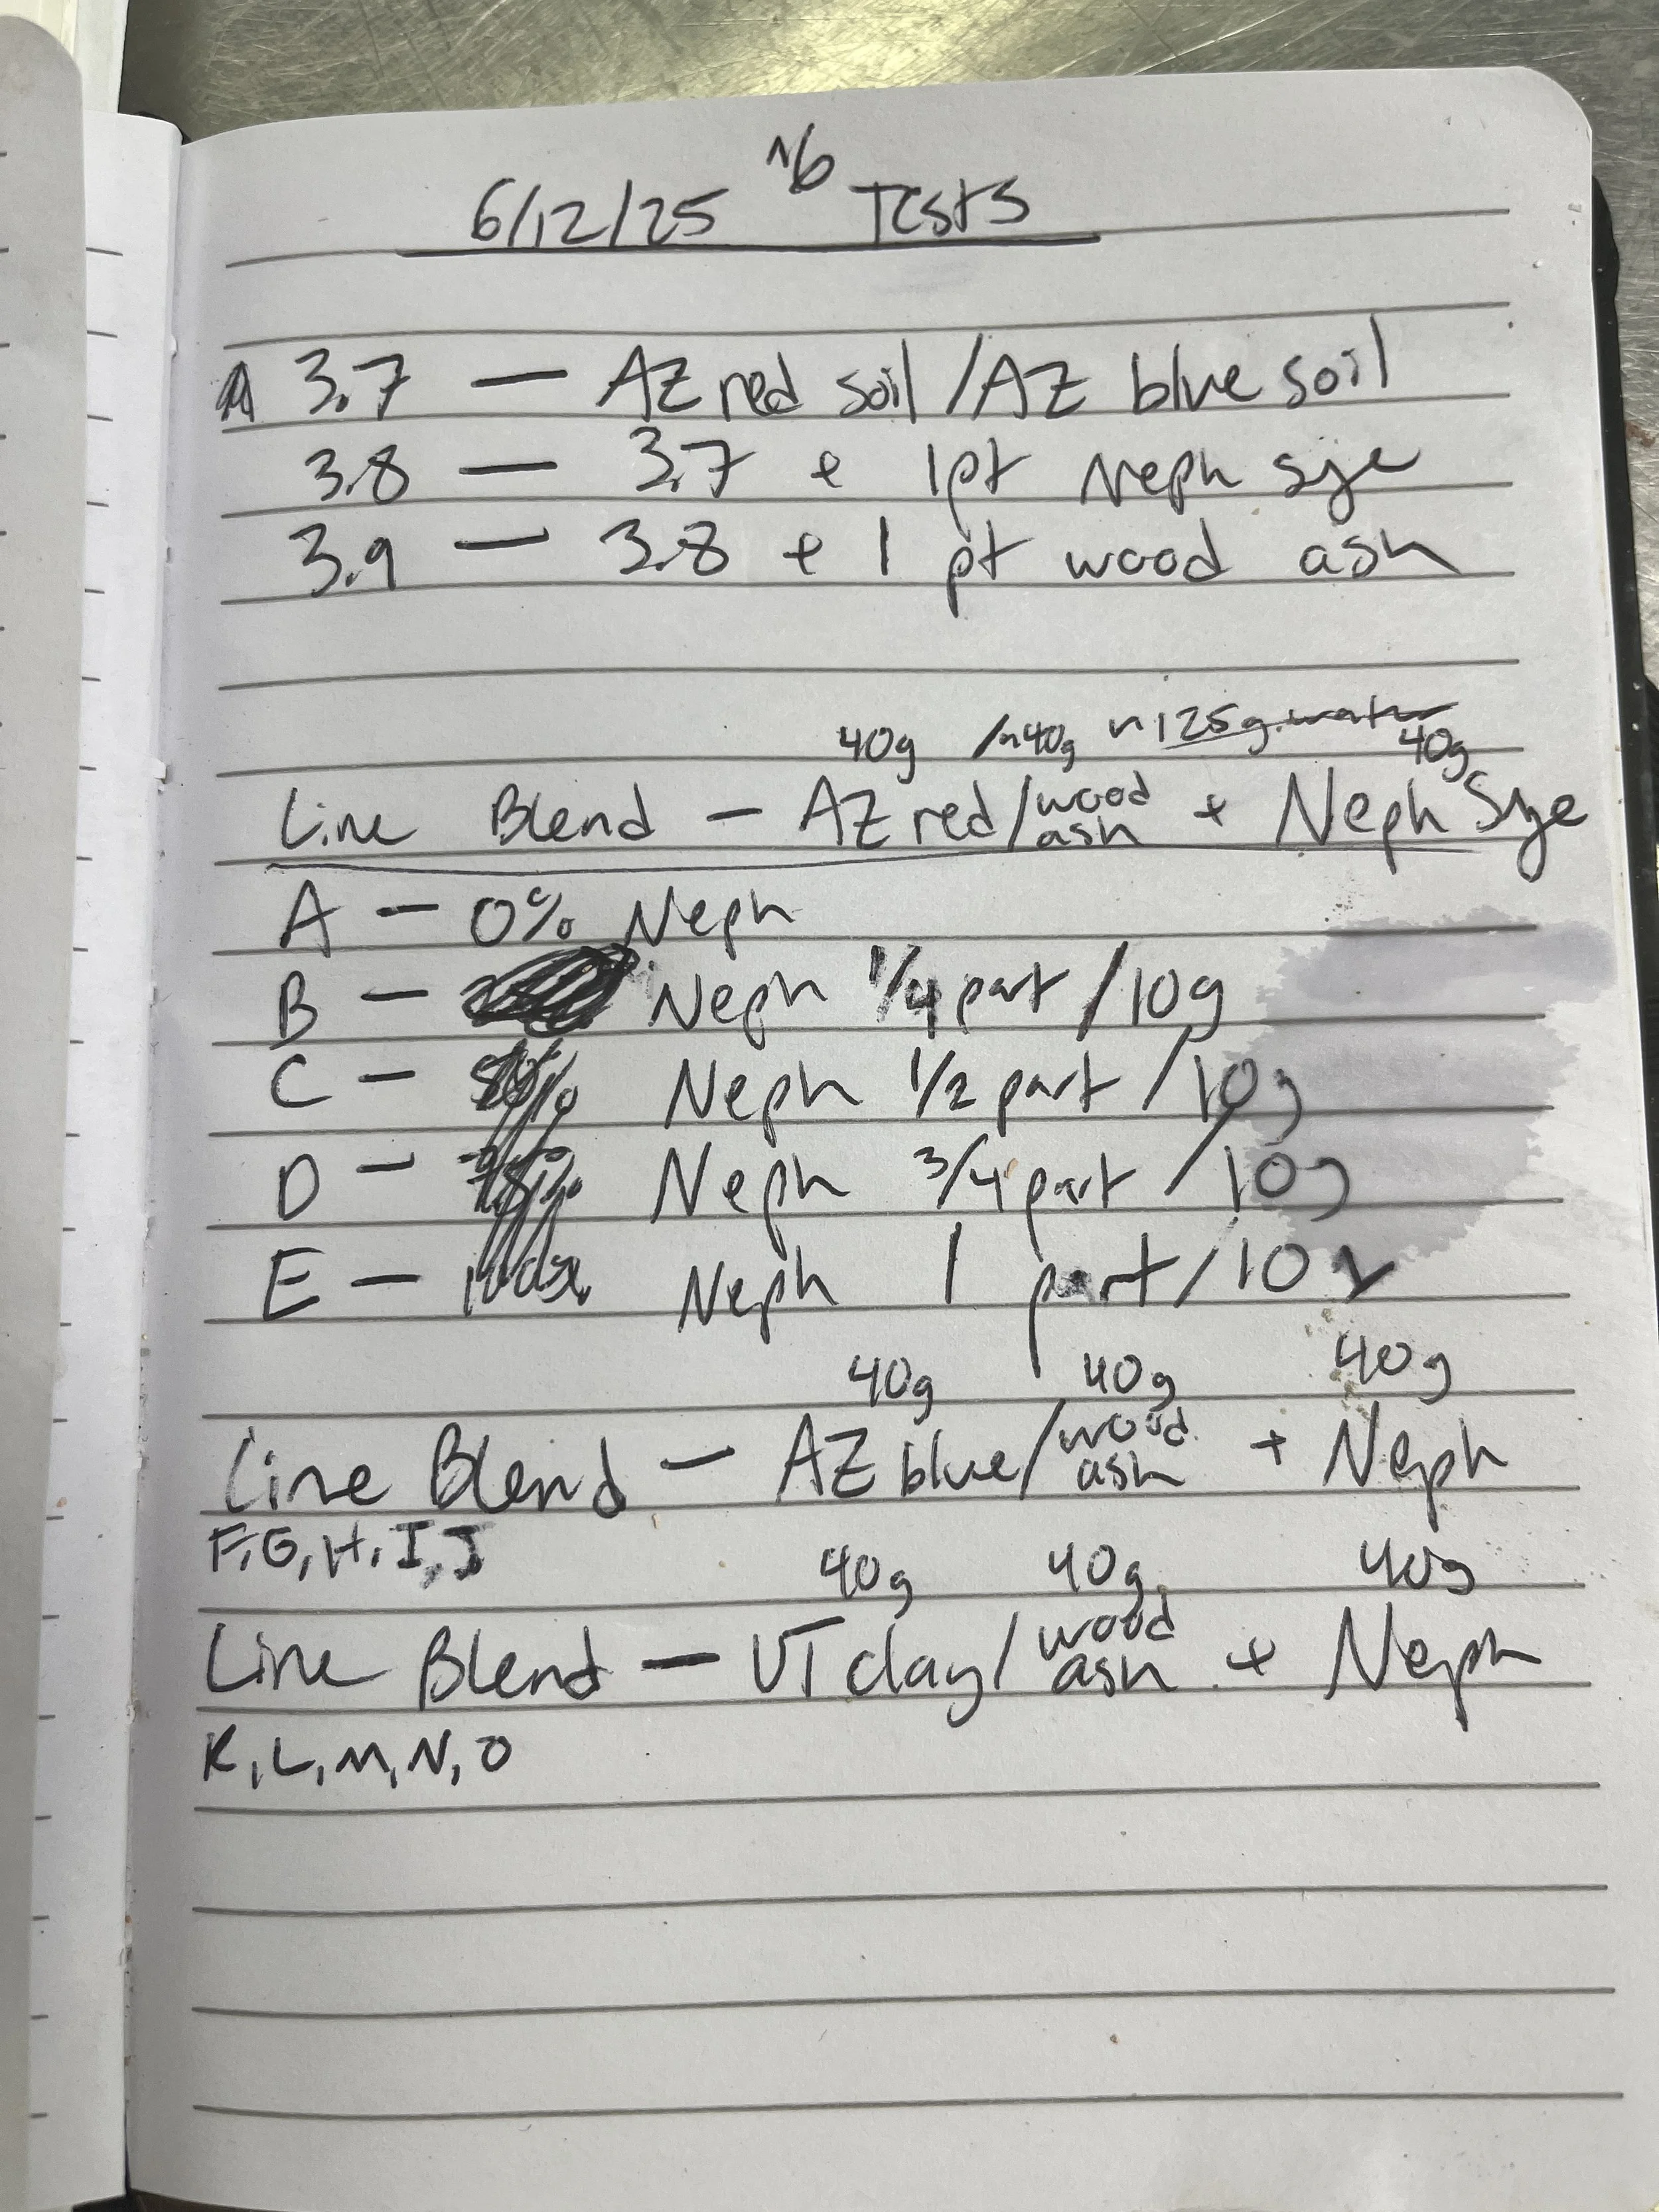 6/12/25 ^6 Tests
3.7 — AZ red soil /AZ blue soil
3.8 — 3.7 + 1pt Neph sye
3.9 — 3.8 + 1 pt wood ash
40g /~40g ~125g water 40g
Line Blend — AZ red/wood ash + Neph Sye
A — 0% Neph
B — Neph 1/4 part /10g
C — 50% Neph 1/2 part /10g
D — 75% Neph 3/4 part /10g
E — 100% Neph 1 part/10g
40g 40g 40g
Line Blend — AZ blue/wood ash + Neph
F, G, H, I, J
40g 40g 40g
Line Blend — VT clay/wood ash + Neph
K, L, M, N, O